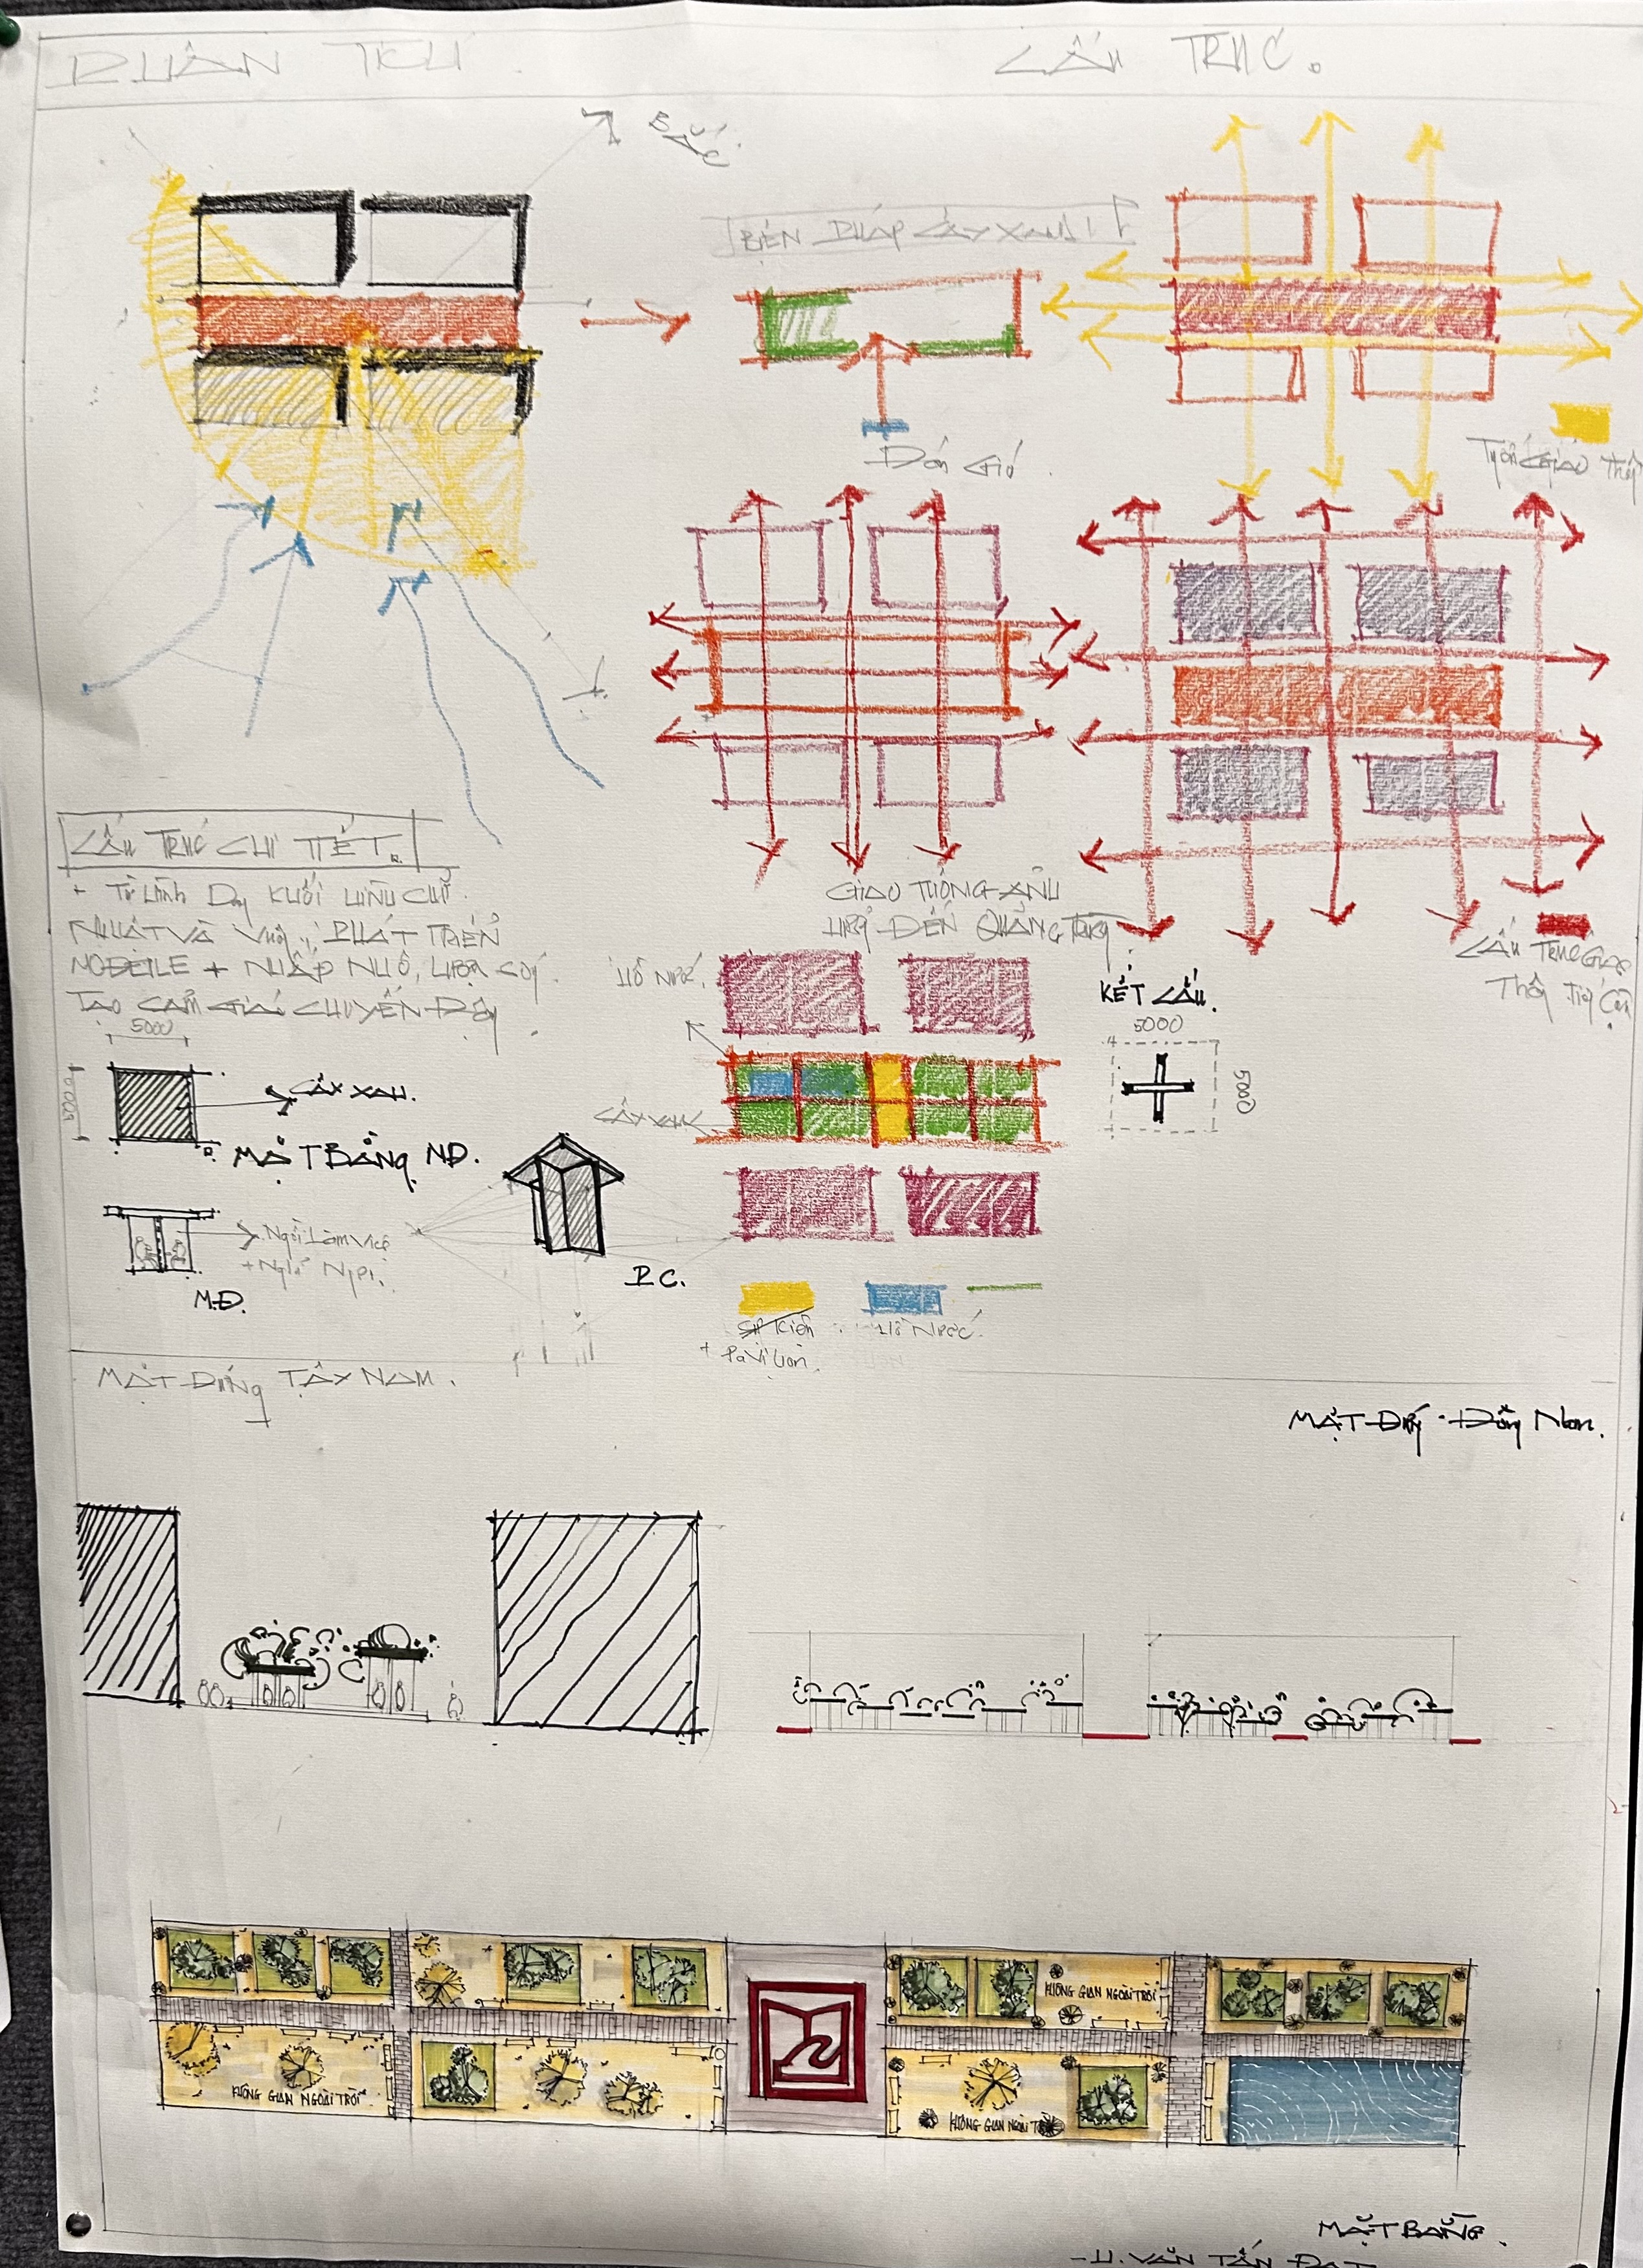 PHÂN TÍCH.
CẤU TRÚC.
BẮC
BIỆN PHÁP CÂY XANH
ĐÓN GIÓ
CẤU TRÚC CHI TIẾT.
+ TỪ HÌNH DẠNG KHỐI HÌNH CHỮ
NHẬT VÀ VUÔNG, PHÁT TRIỂN
MODELE + NHẤP NHÔ,
TẠO CẢM GIÁC CHUYỂN ĐỘNG.
5000
5000
CÂY XANH.
MẶT BẰNG NĐ.
NGỒI LÀM VIỆC
+ NGHỈ NGƠI.
M.Đ.
P.C.
GIAO THÔNG ẢNH
HƯỞNG ĐẾN QUẢNG TRƯỜNG
CẤU TRÚC GIAO
THÔNG TIẾP CẬN
HỒ NƯỚC.
CÂY XANH
KẾT CẤU.
5000
5000
SỰ KIỆN
+ PAVILION.
HỒ NƯỚC.
MẶT ĐỨNG TÂY NAM.
MẶT ĐỨNG ĐÔNG NAM.
KHÔNG GIAN NGOÀI TRỜI
KHÔNG GIAN NGOÀI TRỜI
KHÔNG GIAN NGOÀI
MẶT BẰNG.
VĂN TẤN ĐẠT